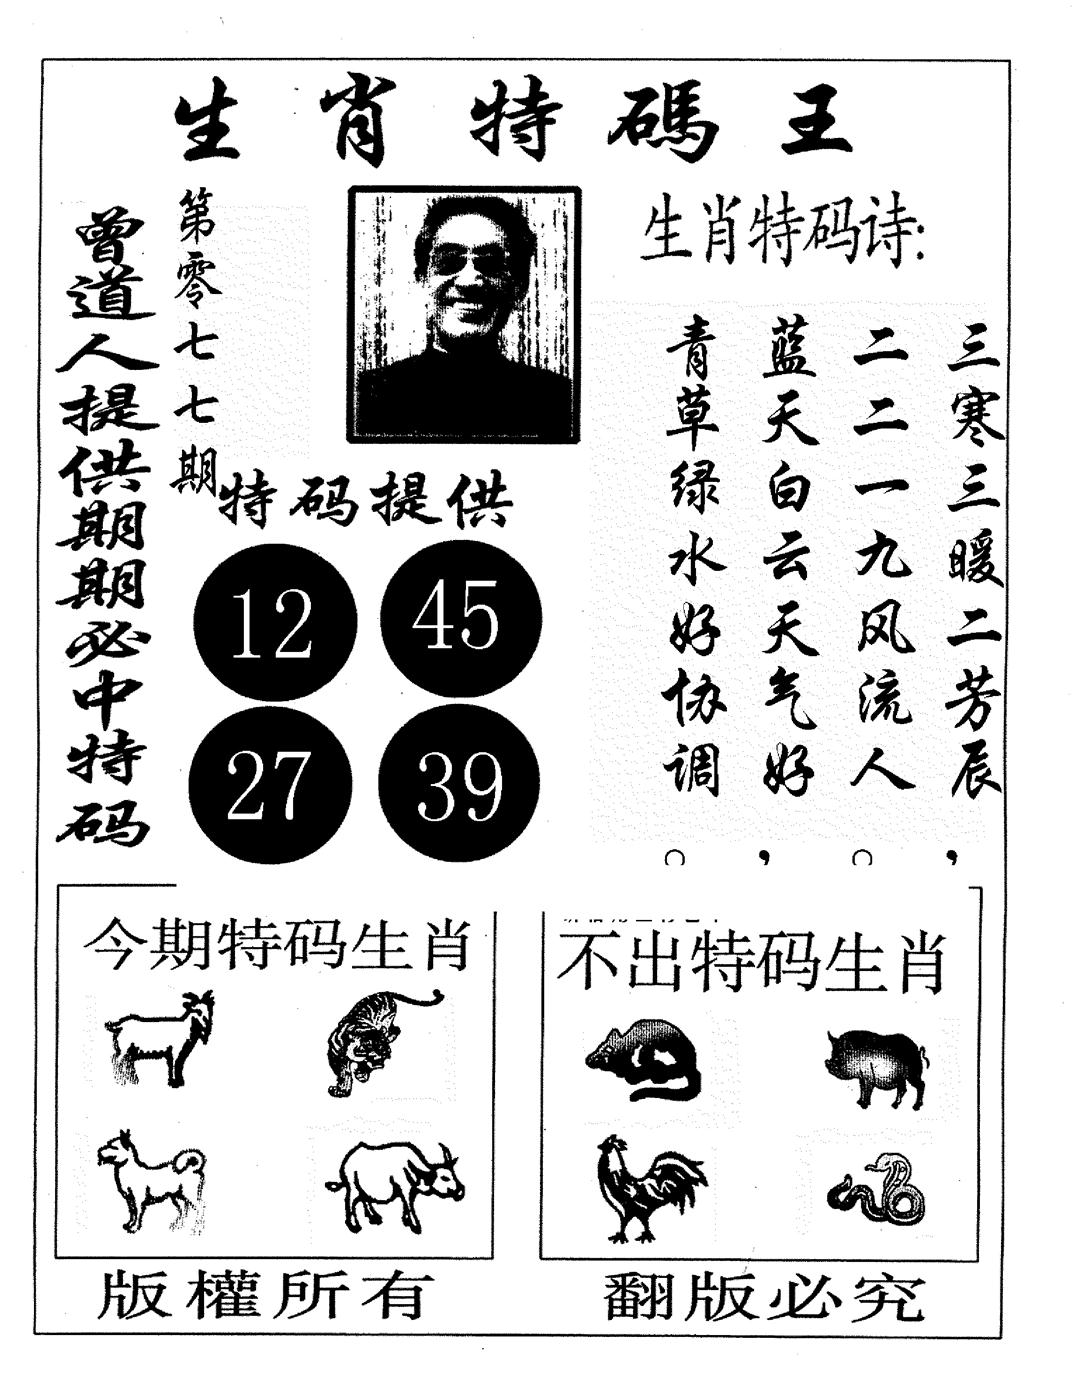 生肖特碼王
曾道人提供期期必中特码
第零七七期
生肖特码诗:
三寒三暖二芳辰,
二二一九风流人。
蓝天白云天气好,
青草绿水好协调。
特码提供
12 45
27 39
今期特码生肖
不出特码生肖
版權所有
翻版必究